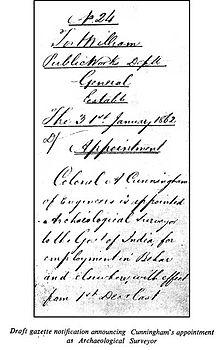 No 24
To William
Public Works Deptt
General
Establt
The 31st January 1862.
Appointment
Colonel A Cunningham
of Engineers is appointed
Archaeological Surveyor
to the Govt of India, for
employment in Behar
and elsewhere with effect
from 1st Decr last
Draft gazette notification announcing Cunningham's appointment
as Archaeological Surveyor